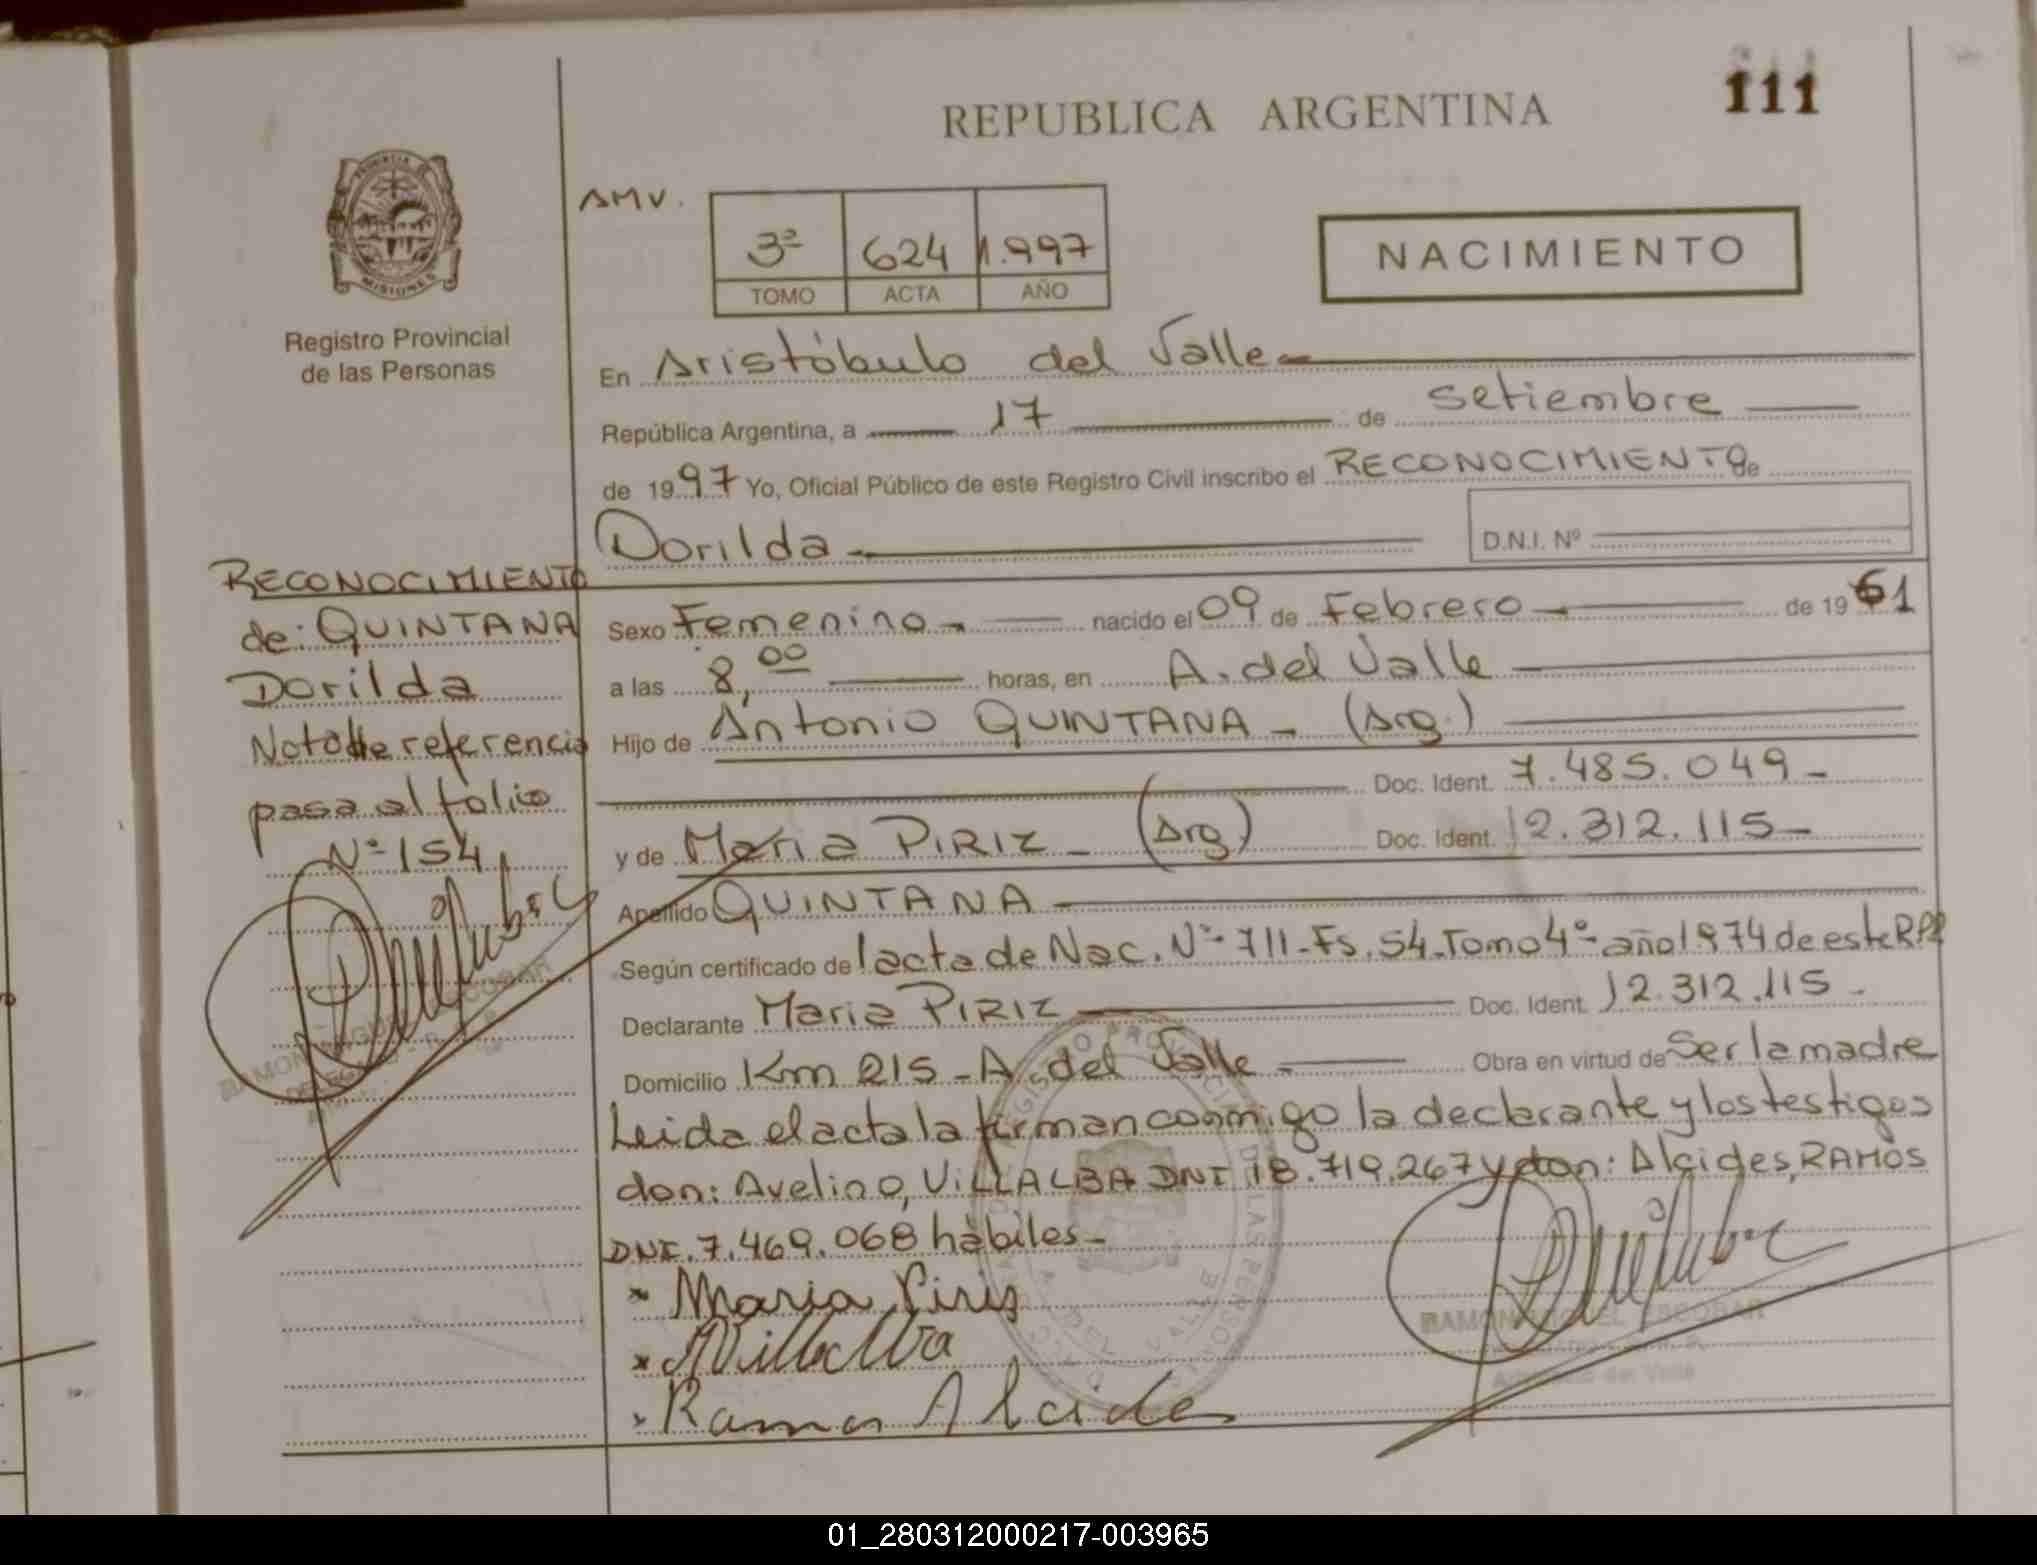 111
REPUBLICA ARGENTINA
PROVINCIA DE
MISIONES
Registro Provincial
de las Personas
AMV.
3º 624 1.997
TOMO ACTA AÑO
NACIMIENTO
En Aristóbulo del Valle
República Argentina, a 17 de setiembre
de 1997 Yo, Oficial Público de este Registro Civil inscribo el RECONOCIMIENTO de
Dorilda D.N.I. Nº
Sexo Femenino nacido el 09 de Febrero de 1961
a las 8,00 horas, en A. del Valle
Hijo de Antonio QUINTANA - (Arg.)
Doc. Ident. 7.485.049-
y de María PIRIZ - (Arg) Doc. Ident. 12.312.115-
Apellido QUINTANA
Según certificado de 1 acta de Nac. Nº 711-Fs.54-Tomo 4º-año 1974 de este RPP
Declarante Maria PIRIZ Doc. Ident. 12.312.115-
Domicilio Km 215 - A. del Valle Obra en virtud de Ser la madre
Leida el acta la firman conmigo la declarante y los testigos
don: Avelino, VILLALBA DNI 18.719.267 y don: Alcides, RAMOS
DNI. 7.469.068 hábiles-
Maria Piris
AVillalba
Ramos Alcides
RAMON MIGUEL ESCOBAR
RECONOCIMIENTO
de: QUINTANA
Dorilda
Nota de referencia
pasa al folio
Nº 154
RAMON MIGUEL ESCOBAR
01_280312000217-003965